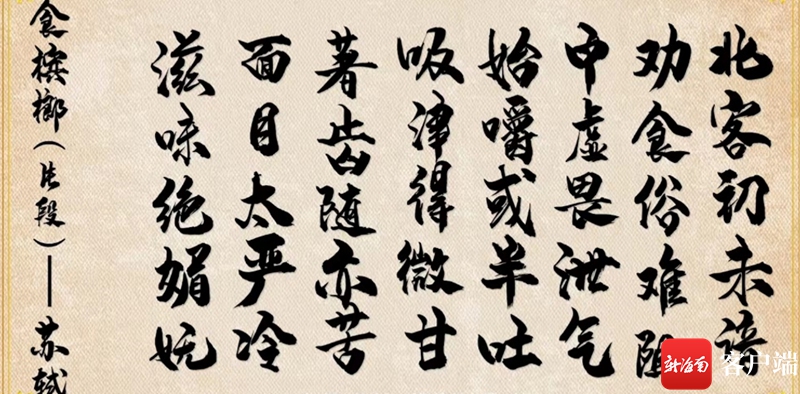 北客初未谙
劝食俗难阻
中虚畏泄气
始嚼或半吐
吸津得微甘
著齿随亦苦
面目太严冷
滋味绝媚妩
食槟榔（片段）——苏轼
新海南
客户端